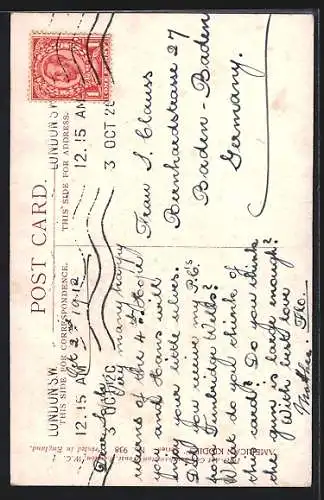 POST CARD
THIS SIDE FOR CORRESPONDENCE.
THIS SIDE FOR ADDRESS.
LONDON.S.W.
12.15 AM
3 OCT
LONDON S.W.
12.15 AM
3 OCT
Oct 2nd 1912
Dear
Very many happy
returns of the 4th. Hope
you and Hans will
enjoy your little selves.
Did you receive my P.Cs
from Tunbridge Wells?
What do you think of
the card? Do you think
the gun is large enough?
With best love
Flo.
Frau S. Clauss
Bernhardstrasse 27
Baden-Baden
Germany.
AMERICAN KIDDIES
938
London, W.C.
Printed in England.